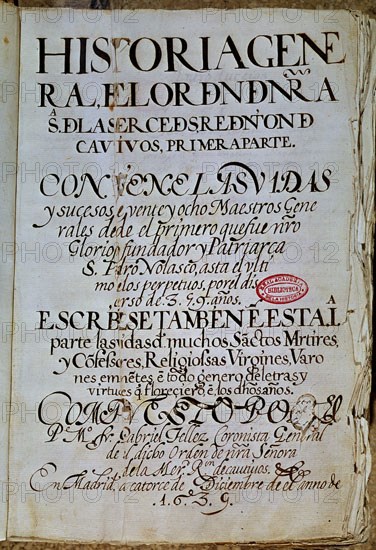 HISTORIA GENE
RAL, DE LORDEN D NRA
A
S. D LAS ERCEDS, REDNÇION D
CAVTIVOS, PRIMERA PARTE.
CONTIENE LAS VIDAS
y sucesos e vente y ocho Maestros Gene
rales desde el primero que fue nro
Glorioso fundador y Patriarca
S. Pedro Nolasco, asta el vlti
mo de los perpetuos, por el dis
curso de 399. años.
A
ESCRIBESE TAMBEN E ESTA I.
parte las vidas d muchos Sactos Mrtires,
y Cōfesores, Religiossas Virgines, Varo
nes emnētes ē todo genero de letras y
virtudes q florecierō, ē los dhos años.
COMPVESTO POR EL
P. Mº. fr. Gabriel Tellez Coronista General
de el dicho Orden de nra Señora
de la Mer. Ron de cautiuos.
En Madrid, a catorce de Diciembre de el anno de
1639.
REAL ACADEMIA
BIBLIOTECA
DE LA HISTORIA
PHOTO 12